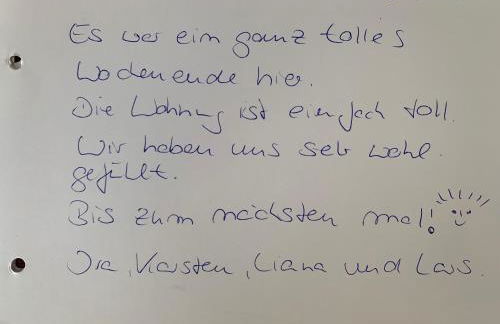 Es war ein ganz tolles
Wochenende hier.
Die Wohnung ist einfach toll.
Wir haben uns sehr wohl
gefühlt.
Bis zum nächsten mal!
Karsten, Liana und Lars.